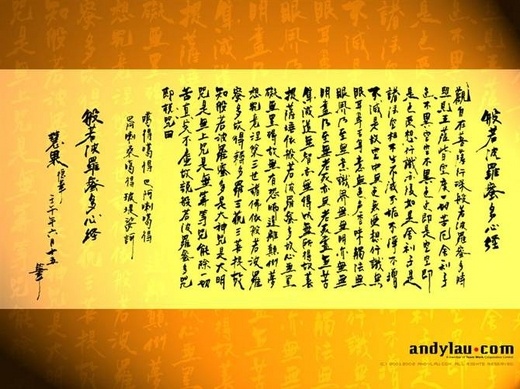 般若波羅蜜多心經
觀自在菩薩行深般若波羅蜜多時
照見五蘊皆空度一切苦厄舍利子
色不異空空不異色色即是空空即
是色受想行識亦復如是舍利子是
諸法空相不生不滅不垢不淨不增
不減是故空中無色無受想行識無
眼耳鼻舌身意無色聲香味觸法無
眼界乃至無意識界無無明亦無無
明盡乃至無老死亦無老死盡無苦
集滅道無智亦無得以無所得故菩
提薩埵依般若波羅蜜多故心無罣
礙無罣礙故無有恐怖遠離顛倒夢
想究竟涅槃三世諸佛依般若波羅
蜜多故得阿耨多羅三藐三菩提故
知般若波羅蜜多是大神咒是大明
咒是無上咒是無等等咒能除一切
苦真實不虛故說般若波羅蜜多咒
即說咒曰
噶得噶得 巴阿喇噶得
般若波羅蜜多心經
慧果
二千年六月十五
andylau.com